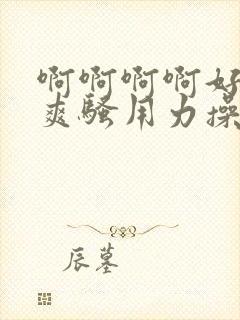 啊啊啊啊好
爽骚用力操
辰墓